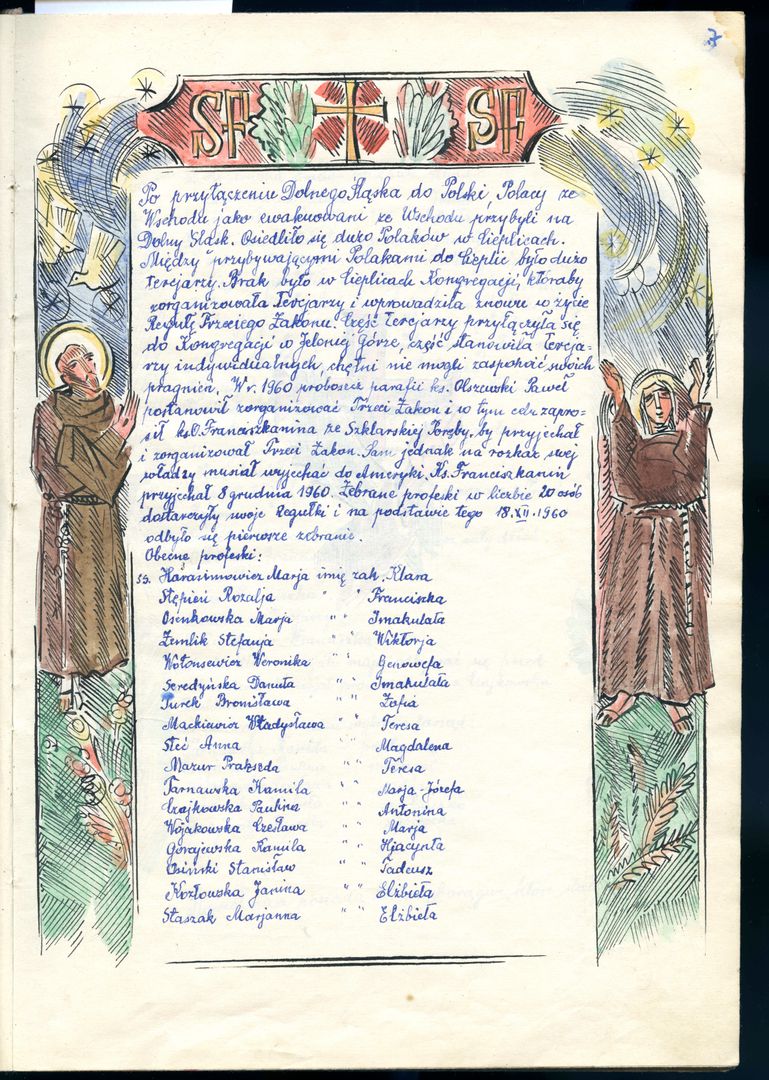 7
SF SF
Po przyłączeniu Dolnego Śląska do Polski, Polacy ze
Wschodu jako ewakuowani ze Wschodu przybyli na
Dolny Śląsk. Osiedliło się dużo Polaków w Cieplicach.
Między przybywającymi Polakami do Cieplic było dużo
tercjarzy. Brak było w Cieplicach Kongregacji, któraby
zorganizowała Tercjarzy i wprowadziła znowu w życie
Regułę Trzeciego Zakonu. Część tercjarzy przyłączyła się
do Kongregacji w Jeleniej Górze, część stanowiła Tercja-
rzy indywidualnych, chętni nie mogli zaspokoić swoich
pragnień. W r. 1960 proboszcz parafii ks. Olszewski Paweł
postanowił zorganizować Trzeci Zakon i w tym celu zapro-
sił ks. O. Franciszkanina ze Szklarskiej Poręby, by przyjechał
i zorganizował Trzeci Zakon. Sam jednak na rozkaz swej
władzy musiał wyjechać do Ameryki. Ks. Franciszkanin
przyjechał 8 grudnia 1960. Zebrane profeski w liczbie 20 osób
dostarczyły swoje Regułki i na podstawie tego 18.XII.1960
odbyło się pierwsze zebranie.
Obecne profeski:
ss. Harasimowicz Marja imię zak. Klara
Stępień Rozalja " " Franciszka
Osenkowska Marja " " Imakulata
Zemlik Stefanja " " Wiktorja
Wołonsewicz Weronika " " Genowefa
Seredyńska Danuta " " Imakulata
Turek Bronisława " " Zofia
Mackiewicz Władysława " " Teresa
Steć Anna " " Magdalena
Mazur Prakseda " " Teresa
Tarnawska Kamila " " Marja-Józefa
Czajkowska Paulina " " Antonina
Wojakowska Czesława " " Marja
Gorajewska Kamila " " Hjacynta
Osiński Stanisław " " Tadeusz
Kozłowska Janina " " Elżbieta
Staszak Marjanna " " Elżbieta